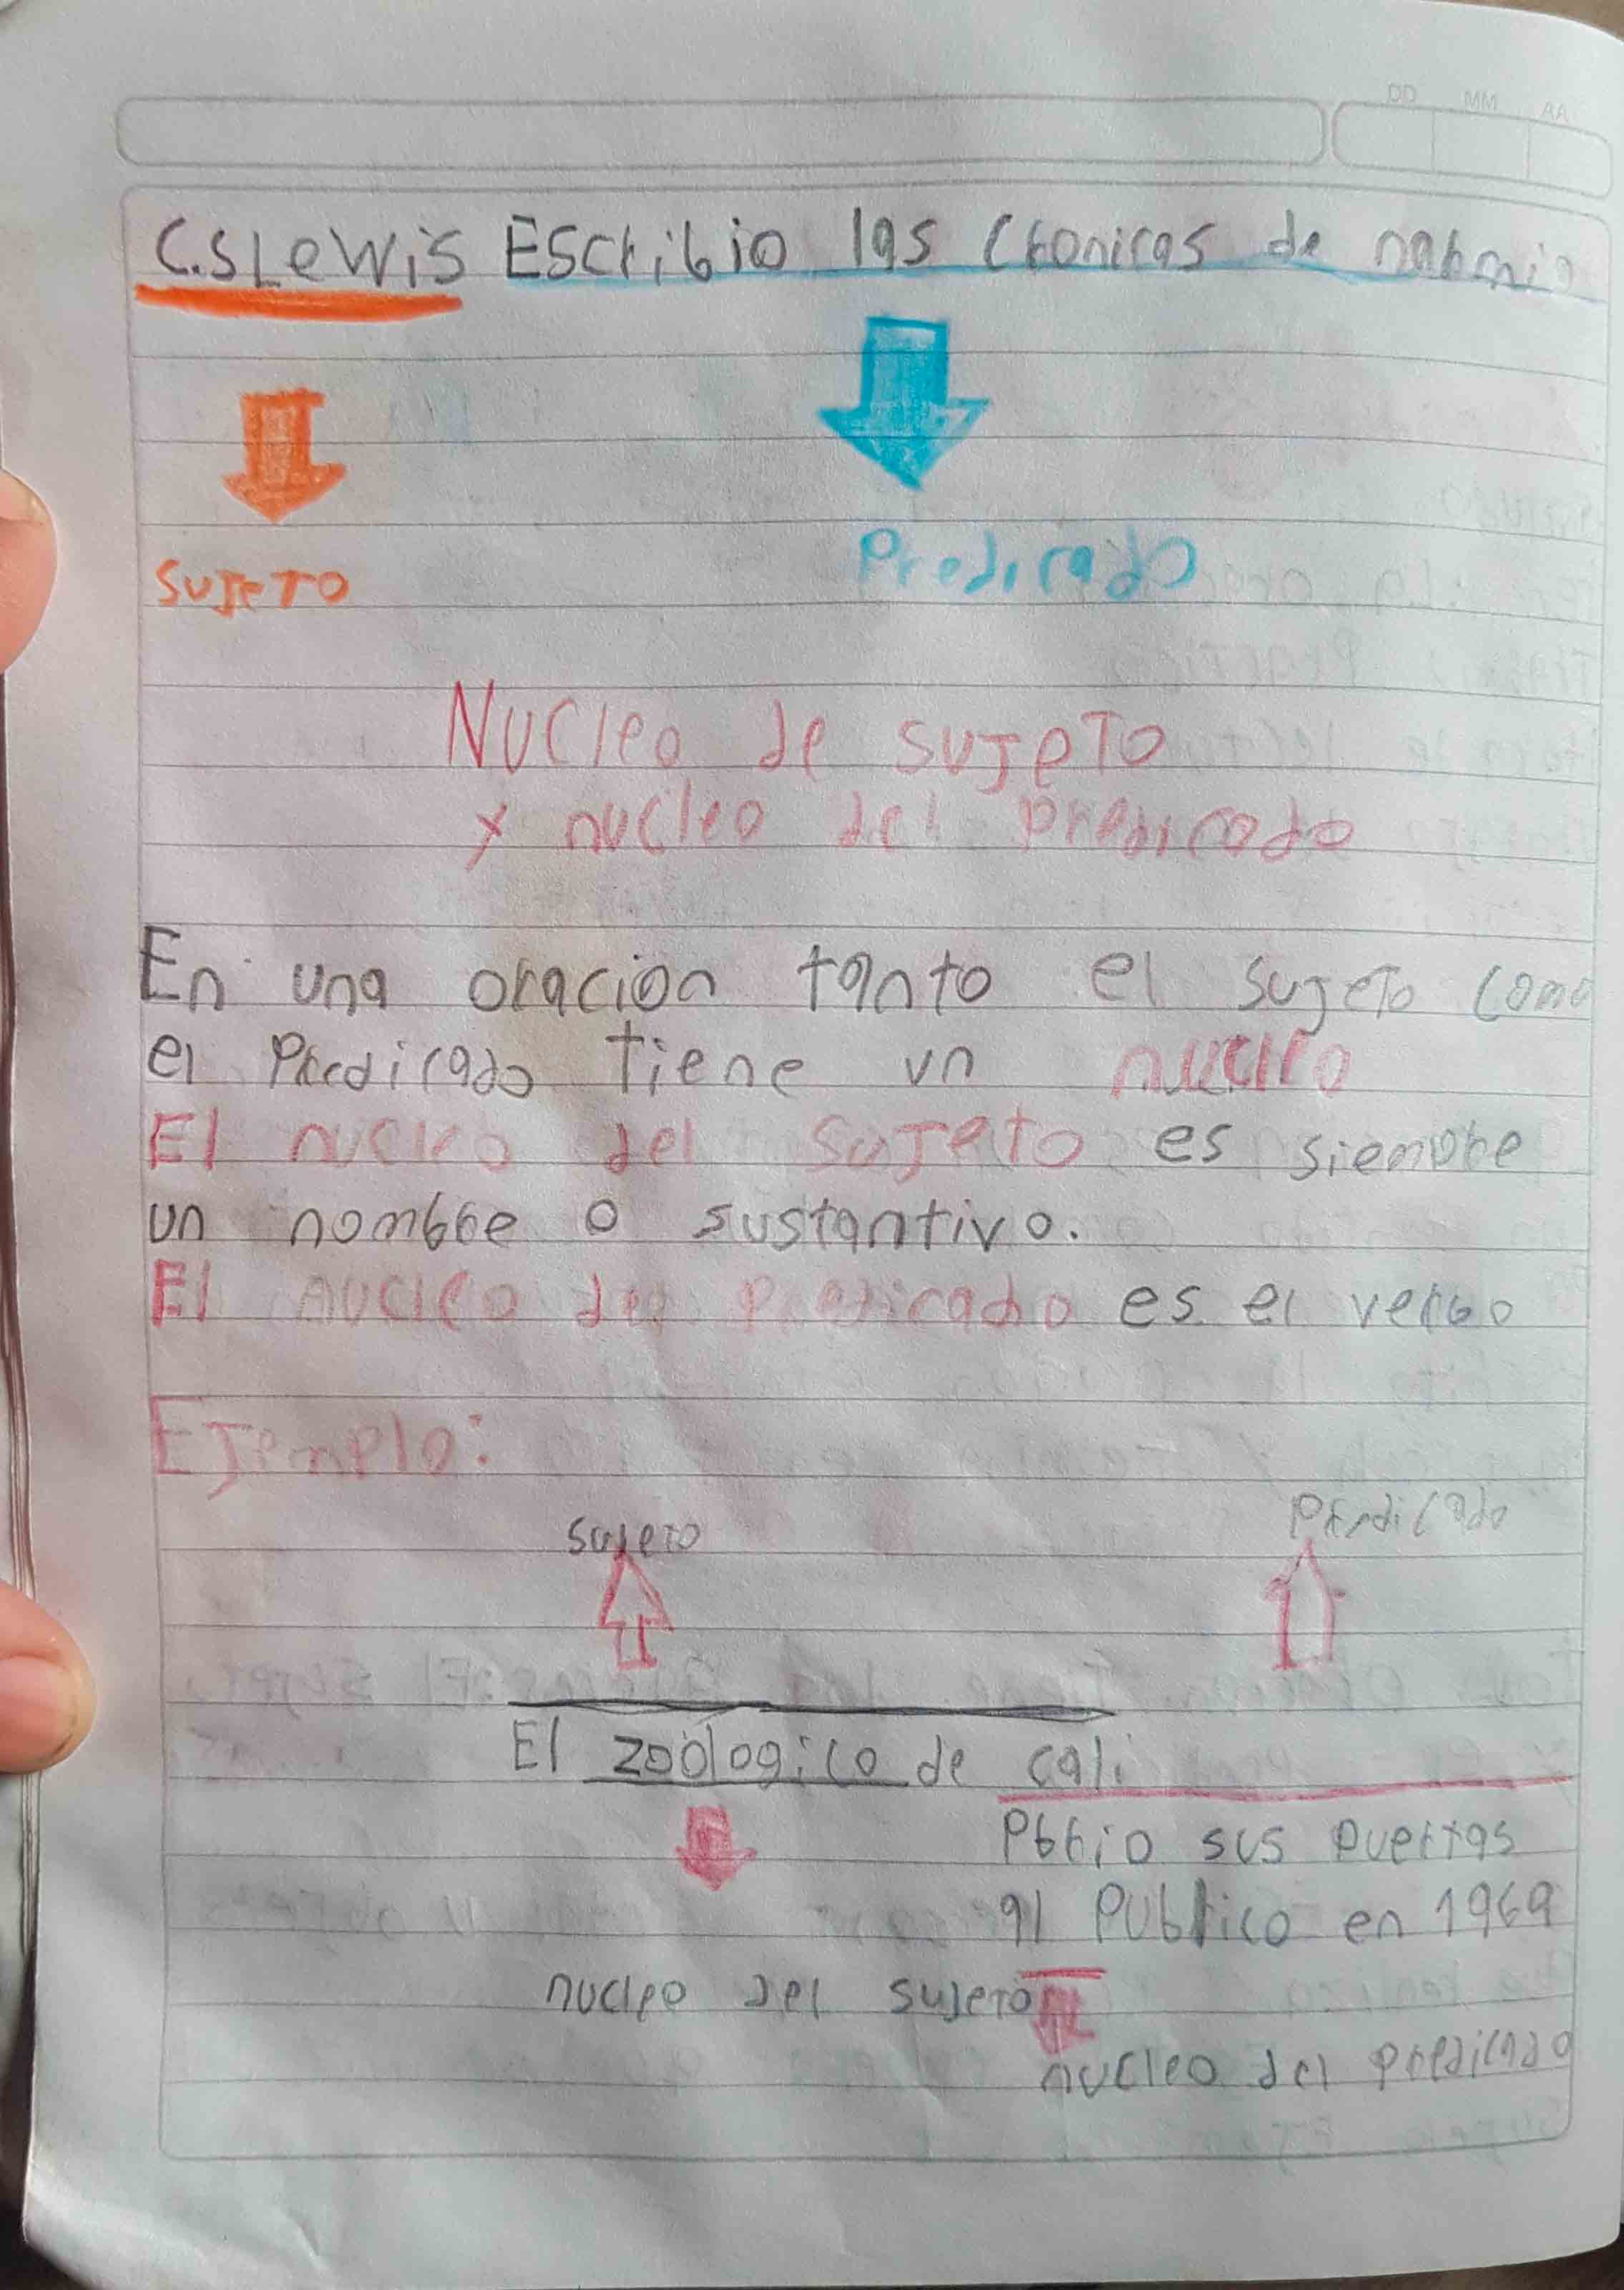 DD MM AA
C.S Lewis Escribio las Cronicas de narnia
Sujeto
Predicado
Nucleo de sujeto
y nucleo del predicado
En una oracion tanto el sujeto como
el Predicado tiene un nucleo
El nucleo del sujeto es siempre
un nombre o sustantivo.
El nucleo del predicado es el verbo
Ejemplo:
sujeto
Predicado
El zoologico de cali
sus puertas
al Publico en 1969
nucleo del sujeto
nucleo del predicado